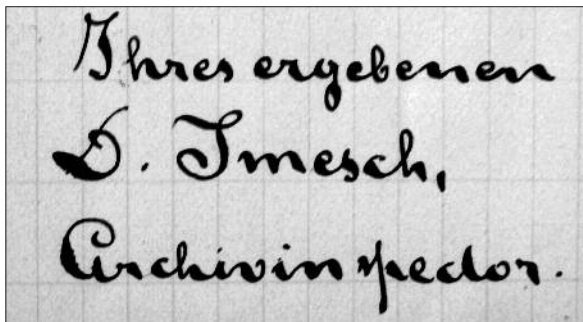 Ihres ergebenen
D. Imesch,
Archivinspector.